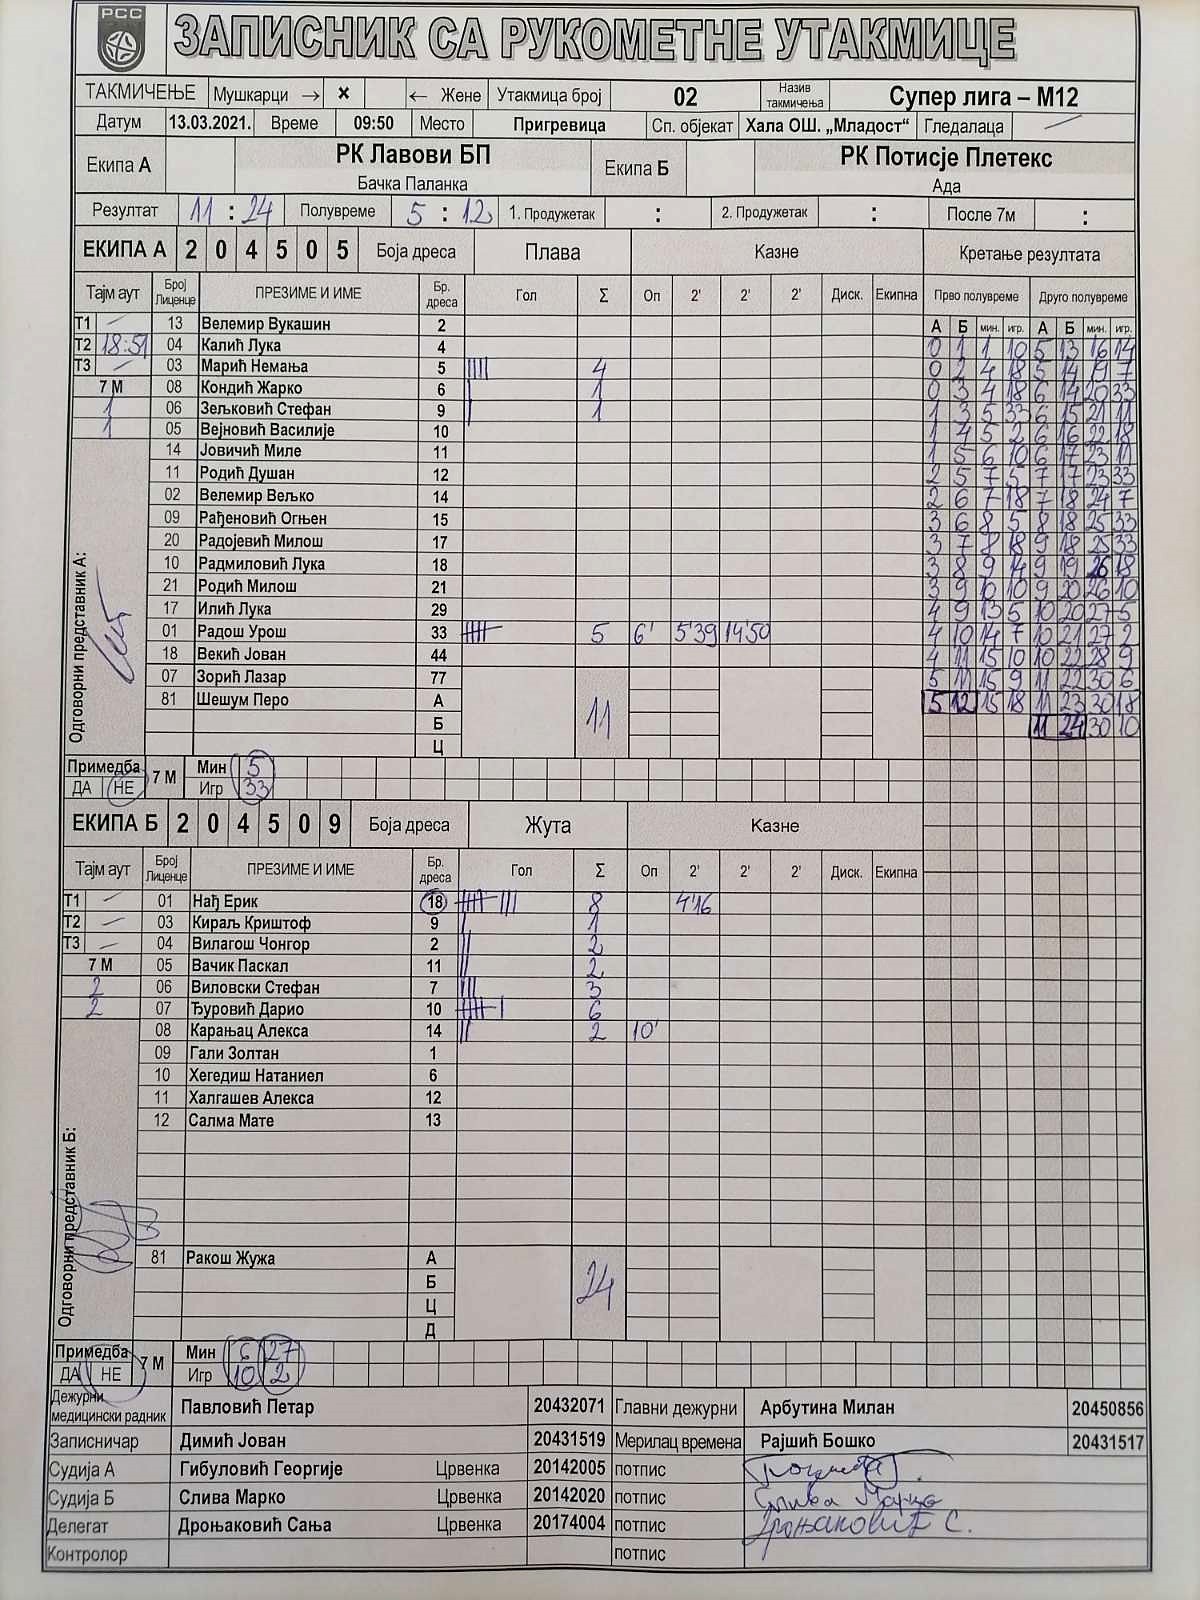 РСС
ЗАПИСНИК СА РУКОМЕТНЕ УТАКМИЦЕ
ТАКМИЧЕЊЕ Мушкарци → × ← Жене Утакмица број 02 Назив такмичења Супер лига – М12
Датум 13.03.2021. Време 09:50 Место Пригревица Сп. објекат Хала ОШ. „Младост“ Гледалаца —
Екипа А РК Лавови БП Екипа Б РК Потисје Плетекс
Бачка Паланка Ада
Резултат 11 : 24 Полувреме 5 : 12 1. Продужетак : 2. Продужетак : После 7м :
ЕКИПА А 2 0 4 5 0 5 Боја дреса Плава Казне Кретање резултата
Тајм аут Број Лиценце ПРЕЗИМЕ И ИМЕ Бр. дреса Гол Σ Оп 2' 2' 2' Диск. Екипна Прво полувреме Друго полувреме
А Б мин. игр. А Б мин. игр.
Т1 — 13 Велемир Вукашин 2
Т2 18:51 04 Калић Лука 4 0 1 1 10 5 13 16 14
Т3 — 03 Марић Немања 5 |||| 4 0 2 4 18 5 14 19 7
7 М 08 Кондић Жарко 6 | 1 0 3 4 18 6 14 20 33
1 06 Зељковић Стефан 9 | 1 1 3 5 33 6 15 21 11
1 05 Вејновић Василије 10 1 4 5 2 6 16 22 18
14 Јовичић Миле 11 1 5 6 10 6 17 23 11
11 Родић Душан 12 2 5 7 5 7 17 23 33
02 Велемир Вељко 14 2 6 7 18 7 18 24 7
09 Рађеновић Огњен 15 3 6 8 5 8 18 25 33
20 Радојевић Милош 17 3 7 8 18 9 18 25 33
10 Радмиловић Лука 18 3 8 9 14 9 19 26 18
21 Родић Милош 21 3 9 10 10 9 20 26 10
17 Илић Лука 29 4 9 13 5 10 20 27 5
01 Радош Урош 33 5 6' 5'39 14'50 4 10 14 7 10 21 27 2
18 Векић Јован 44 4 11 15 10 10 22 28 9
07 Зорић Лазар 77 5 11 15 9 11 22 30 6
81 Шешум Перо А 11 5 12 15 18 11 23 30 18
Б 11 24 30 10
Ц
Одговорни представник А:
Примедба ДА НЕ 7 М Мин 5
Игр 33
ЕКИПА Б 2 0 4 5 0 9 Боја дреса Жута Казне
Тајм аут Број Лиценце ПРЕЗИМЕ И ИМЕ Бр. дреса Гол Σ Оп 2' 2' 2' Диск. Екипна
Т1 — 01 Нађ Ерик 18 8 4'16
Т2 — 03 Кираљ Криштоф 9 | 1
Т3 — 04 Вилагош Чонгор 2 || 2
7 М 05 Вачик Паскал 11 || 2
2 06 Виловски Стефан 7 ||| 3
2 07 Ђуровић Дарио 10 6
08 Карањац Алекса 14 || 2 10'
09 Гали Золтан 1
10 Хегедиш Натаниел 6
11 Халгашев Алекса 12
12 Салма Мате 13
81 Ракош Жужа А 24
Б
Ц
Д
Одговорни представник Б:
Примедба ДА НЕ 7 М Мин 6 27
Игр 10 2
Дежурни медицински радник Павловић Петар 20432071 Главни дежурни Арбутина Милан 20450856
Записничар Димић Јован 20431519 Мерилац времена Рајшић Бошко 20431517
Судија А Гибуловић Георгије Црвенка 20142005 потпис
Судија Б Слива Марко Црвенка 20142020 потпис Слива Марко
Делегат Дроњаковић Сања Црвенка 20174004 потпис Дроњаковић С.
Контролор потпис